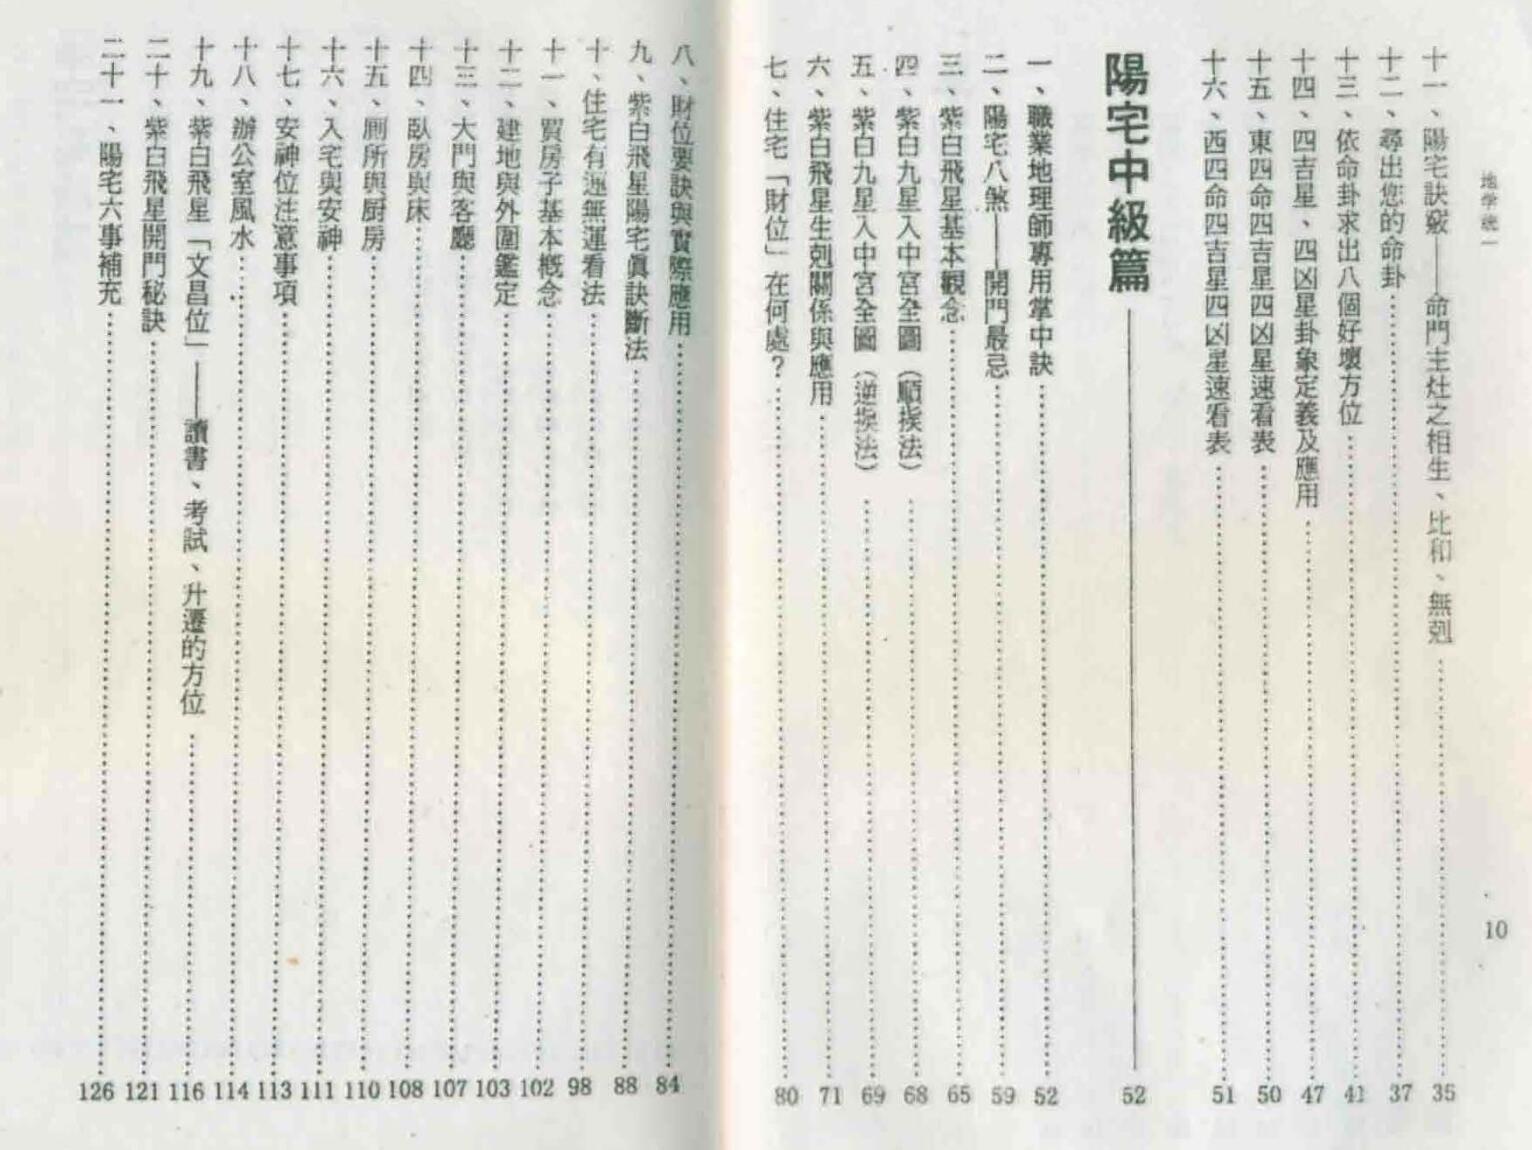 地學統一
10
十一、陽宅訣竅——命門主灶之相生、比和、無剋……35
十二、尋出您的命卦……37
十三、依命卦求出八個好壞方位……41
十四、四吉星、四凶星卦象定義及應用……47
十五、東四命四吉星四凶星速看表……50
十六、西四命四吉星四凶星速看表……51
陽宅中級篇——52
一、職業地理師專用掌中訣……52
二、陽宅八煞——開門最忌……59
三、紫白飛星基本觀念……65
四、紫白九星入中宮全圖（順挨法）……68
五、紫白九星入中宮全圖（逆挨法）……69
六、紫白飛星生剋關係與應用……71
七、住宅「財位」在何處？……80
八、財位要訣與實際應用……84
九、紫白飛星陽宅眞訣斷法……88
十、住宅有運無運看法……98
十一、買房子基本概念……102
十二、建地與外圍鑑定……103
十三、大門與客廳……107
十四、臥房與床……108
十五、厠所與厨房……110
十六、入宅與安神……111
十七、安神位注意事項……113
十八、辦公室風水……114
十九、紫白飛星「文昌位」——讀書、考試、升遷的方位……116
二十、紫白飛星開門秘訣……121
二十一、陽宅六事補充……126